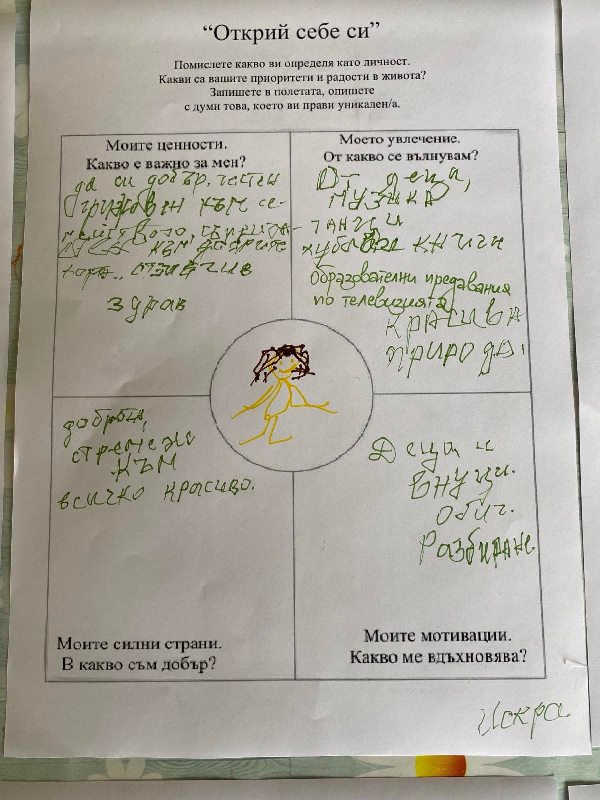 “Открий себе си”
Помислете какво ви определя като личност.
Какви са вашите приоритети и радости в живота?
Запишете в полетата, опишете
с думи това, което ви прави уникален/а.
Моите ценности.
Какво е важно за мен?
да си добър, честен
грижовен към се-
мейството,
към
здрав
Моето увлечение.
От какво се вълнувам?
От деца,
музика
танци
хубави книги
образователни предавания
по телевизията
красива
природа.
доброта,
стремежи
към
всичко красиво.
Моите силни страни.
В какво съм добър?
Деца и
внуци.
Обич.
Разбиране
Моите мотивации.
Какво ме вдъхновява?
Искра